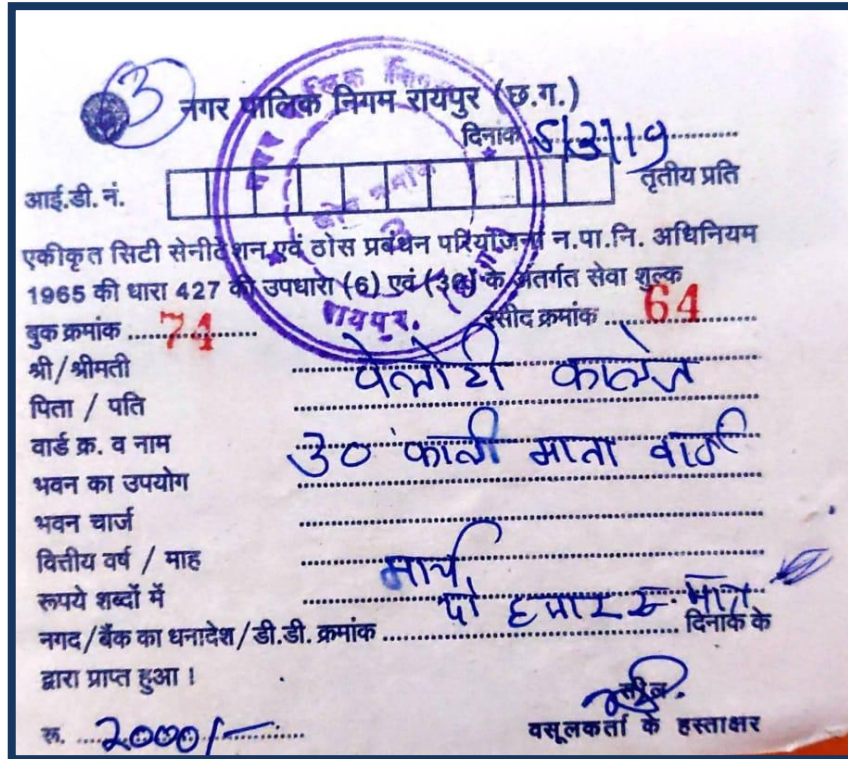 3
नगर पालिक निगम रायपुर (छ.ग.)
दिनांक 5/3/19
आई.डी. नं.
तृतीय प्रति
एकीकृत सिटी सेनीटेशन एवं ठोस प्रबंधन परियोजना न.पा.नि. अधिनियम
1965 की धारा 427 की उपधारा (6) एवं (30) के अंतर्गत सेवा शुल्क
बुक क्रमांक 74 रसीद क्रमांक 64
श्री/श्रीमती पेलोटी कालेज
पिता / पति
वार्ड क्र. व नाम 30 काली माता वार्ड
भवन का उपयोग
भवन चार्ज
वित्तीय वर्ष / माह मार्च
रूपये शब्दों में दो हजार रु. मात्र
नगद/बैंक का धनादेश/डी.डी. क्रमांक दिनांक के
द्वारा प्राप्त हुआ ।
रू. 2000/-
वसूलकर्ता के हस्ताक्षर
रायपुर.